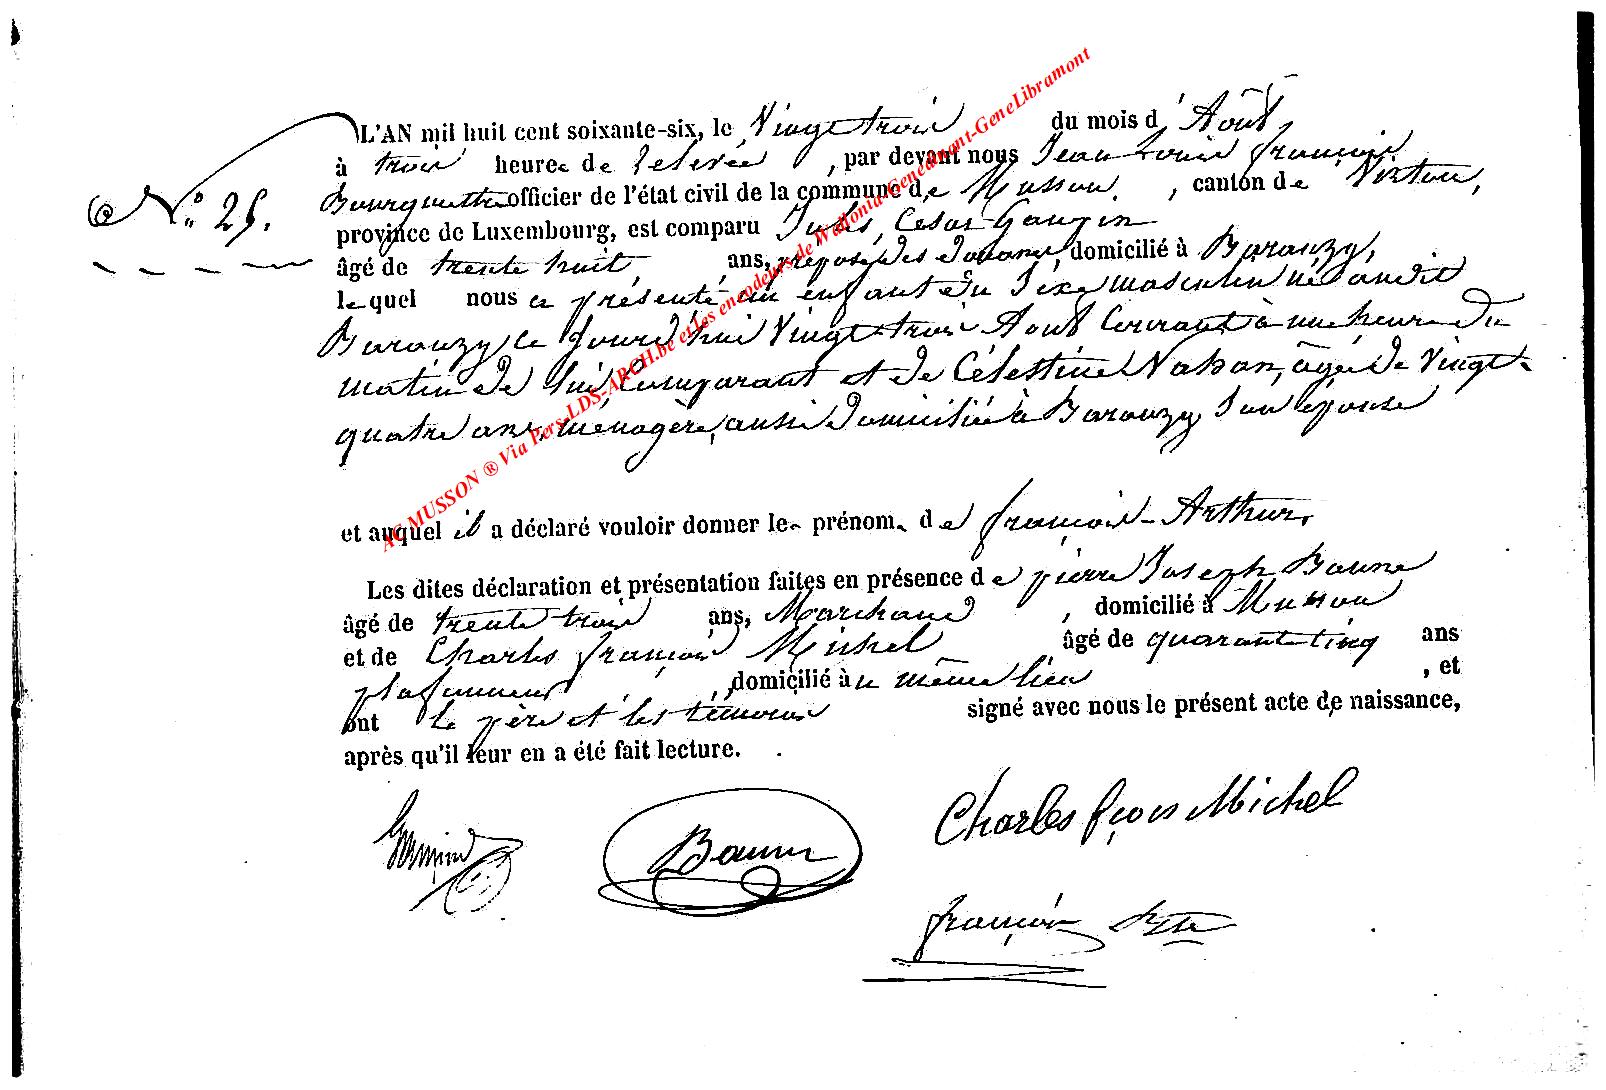 L'AN mil huit cent soixante-six, le Vingt trois du mois d'Août
à trois heures de relevée, par devant nous Jean Louis françois
N° 25. Bourguette officier de l'état civil de la commune de Musson, canton de Virton,
province de Luxembourg, est comparu Jules, César
âgé de trente huit, ans, préposé des douanes, domicilié à Baranzy,
lequel nous a présenté un enfant du Sexe masculin né audit
Baranzy ce jourd'hui Vingt trois Août Courant à une heure du
matin de lui Comparant et de Célestine âgée de Vingt-
quatre ans, ménagère, aussi domiciliée à Baranzy Son épouse
et auquel il a déclaré vouloir donner les prénoms de françois-Arthur.
Les dites déclaration et présentation faites en présence de pierre Joseph Baune
âgé de trente trois ans, Marchand, domicilié à Musson
et de Charles françois Michel âgé de quarante cinq ans
plafonneur, domicilié à u même lieu, et
ont le père et les témoins signé avec nous le présent acte de naissance,
après qu'il leur en a été fait lecture.
Charles fçois Michel
Baune
françois
AC MUSSON ® Via Pers-LDS-ARCH.be et les encodeurs de Wallonia-Genedinant-GeneLibramont